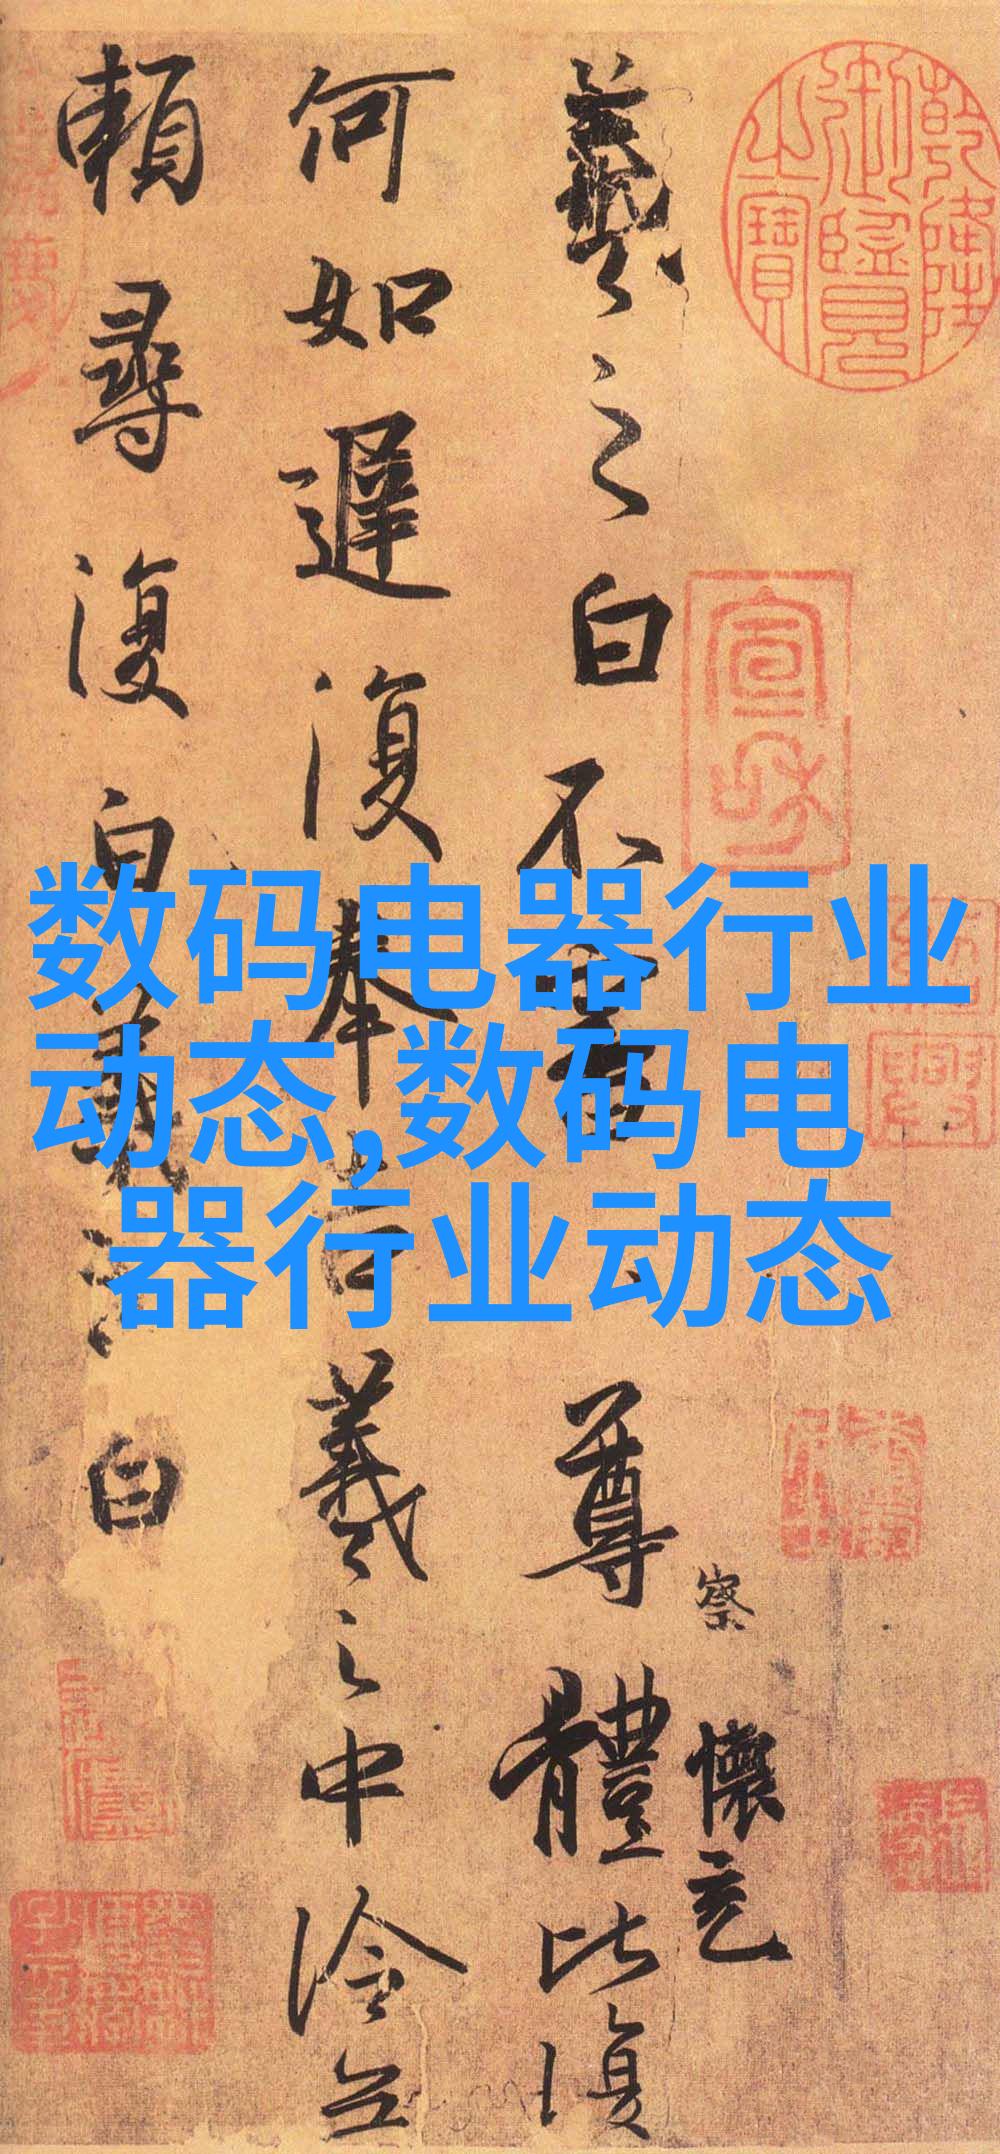 乾隆御覽之寶
宣和
察
懷充
羲之白不審尊體比復
何如遲復奉告羲之中冷無
賴尋復白羲之白
数码电器行业
动态,数码电
器行业动态